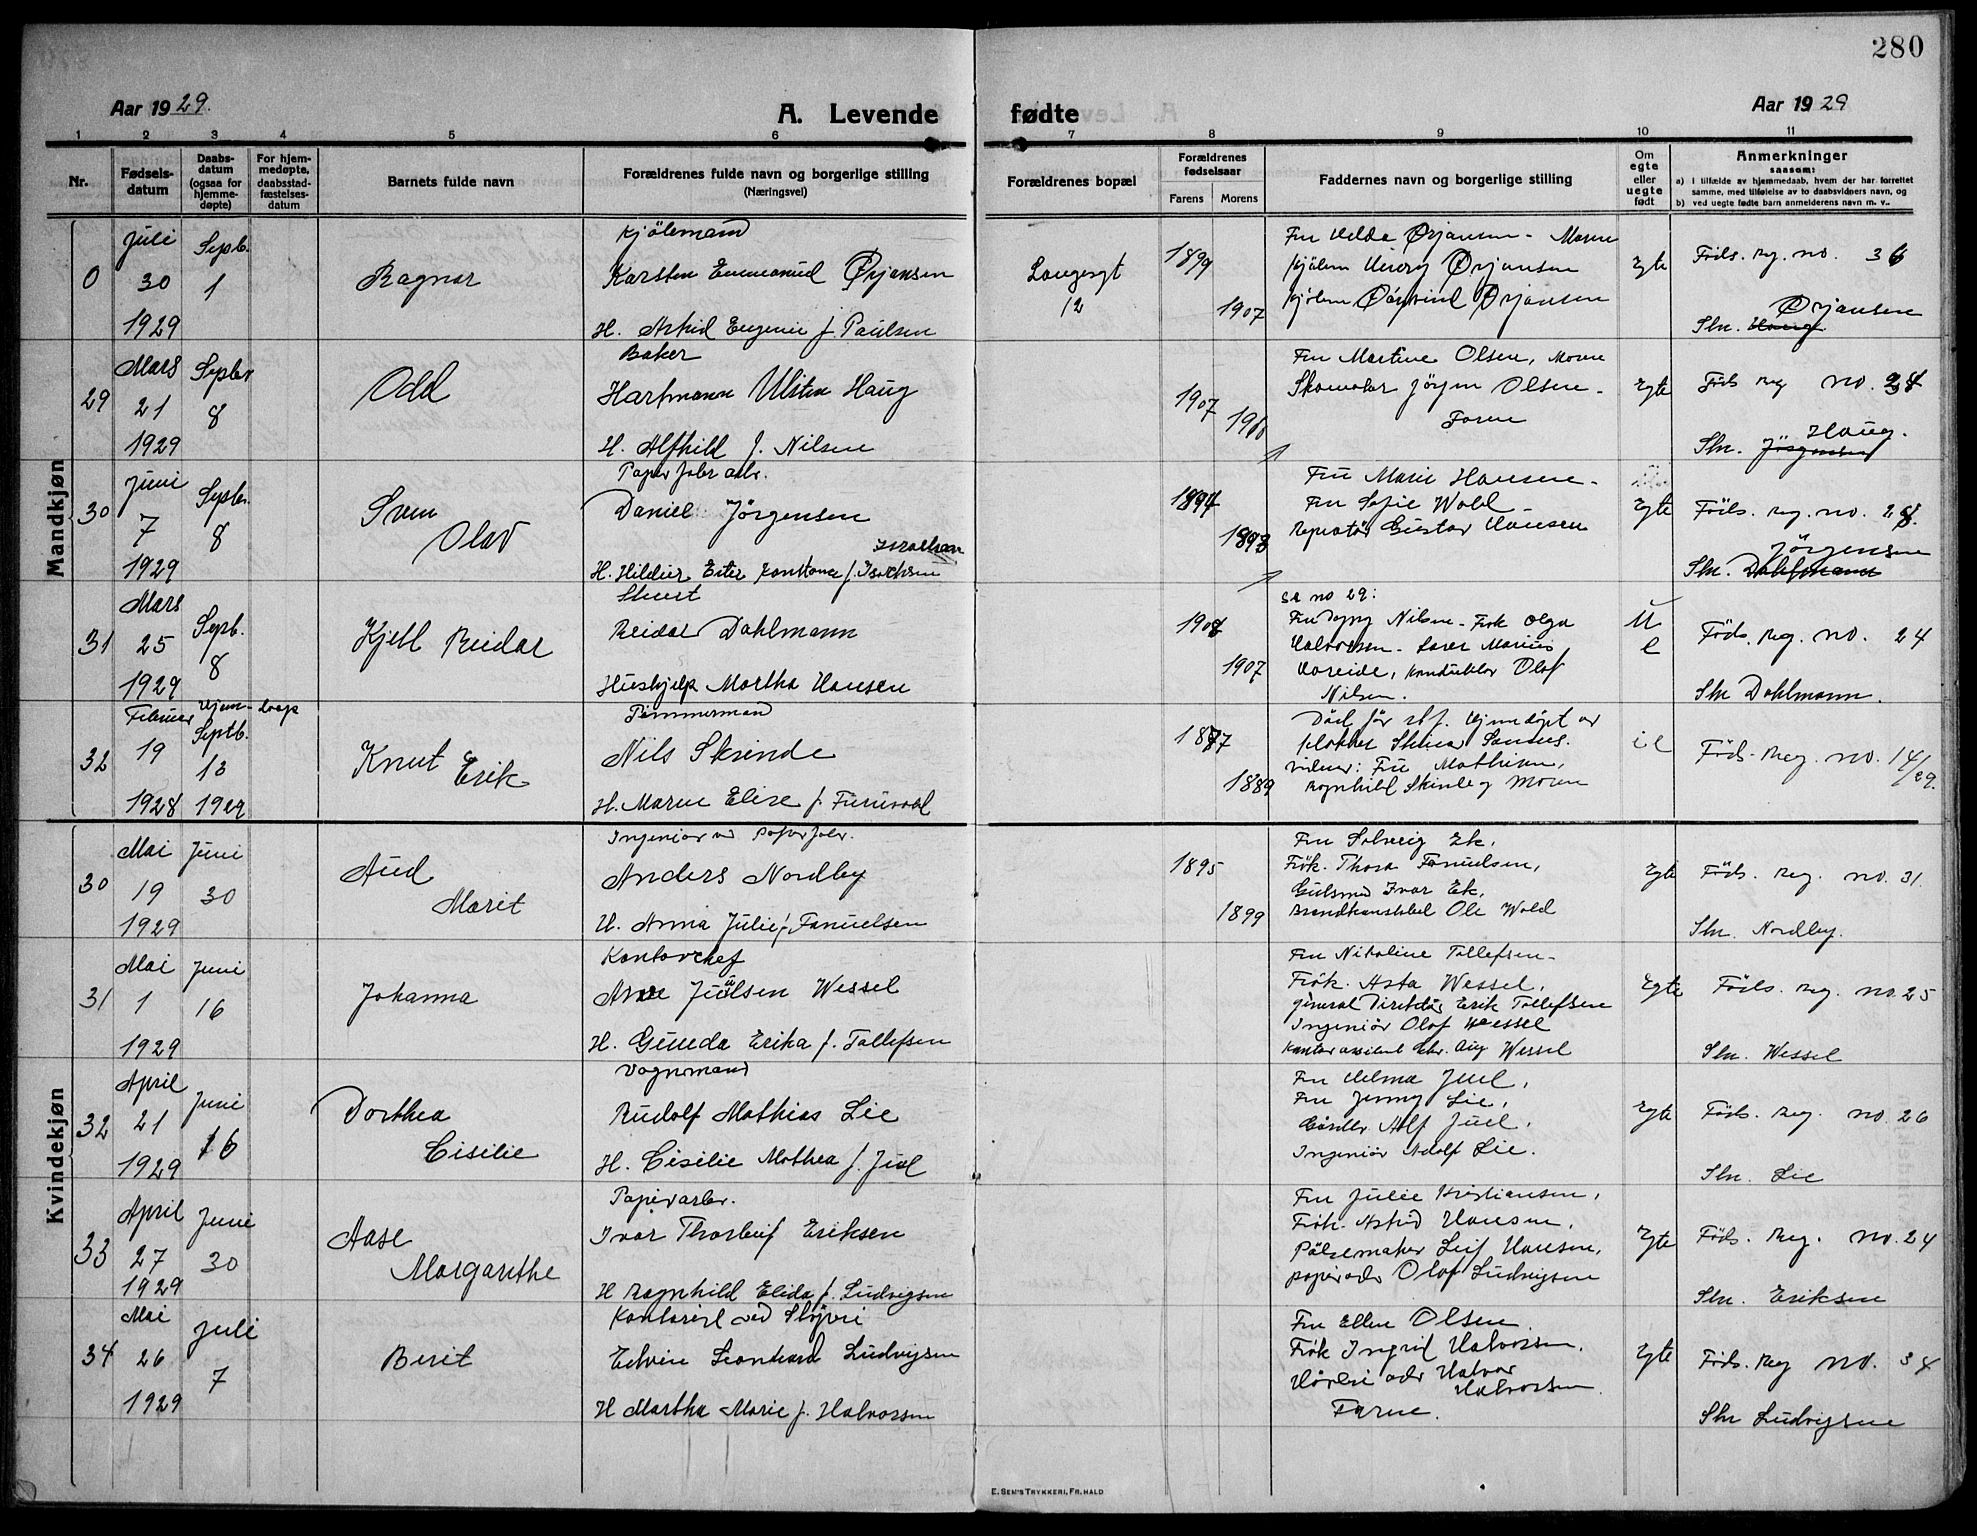 280
Aar 1929.
A. Levende fødte
Aar 1929
1 2 3 4 5 6 7 8 9 10 11
Nr.
Fødsels-
datum
Daabs-
datum
(ogsaa for
hjemme-
døpte)
For hjem-
medøpte,
daabsstad-
fæstelses-
datum
Barnets fulde navn
Forældrenes fulde navn og borgerlige stilling
(Næringsvei)
Forældrenes bopæl
Forældrenes
fødselsaar
Farens Morens
Faddernes navn og borgerlige stilling
Om
egte
eller
uegte
født
Anmerkninger
saasom:
a) i tilfælde av hjemmedaab, hvem der har forrettet
samme, med tilføielse av to daabsvidners navn, og
b) ved uegte fødte barn anmelderens navn m. v..
Mandkjøn
0
Juli
30
1929
Septb.
1
Ragnar
Kjölemand
Karsten Emmanuel Ørjansen
H. Astrid Eugenie f. Paulsen
Langesgt
12
1899
1907
Fru Hilda Ørjansen - Moren
Kjølem Henry Ørjansen
Kjølem Øivind Ørjansen
Egte
Föds. Reg. no. 36
Ørjansen
Sln. Haug
29
Mars
21
1929
Septbr
8
Odd
Baker
Hartmann Ulsten Haug
H. Alfhild f. Nilsen
1907
Fru Martine Olsen, Moren
Skomaker Jörgen Olsen -
Faren
Egte
Föds Reg no.
Haug.
Sln. Jörgensen
30
Juni
7
1929
Septbr.
8
Sven
Olav
Papirfabr arb.
Daniel Jörgensen
Israelsen
H. Hildur Ester Konstance f. Isaksen
Fru Marie Hansen -
Fru Sofie Wold -
Reparatör Gustav Hansen
Egte
Föds. Reg. no. 28.
Jörgensen
Sln. Dahlmann
31
Mars
25
1929
Septb.
8
Kjell Reidar
Stuert
Reidar Dahlmann
Hushjelp Martha Hansen
1907
se no 29:
Nilsen - Frk Olga
Halvorsen - Marius
konduktör Olaf
Nilsen.
U
e
Föds. Reg. no. 24
Sln Dahlmann.
32
Februar
19
1928
Hjem-daap
Septb.
13
1929
Knut Erik
Tömmermand
Nils Skrinde
H. Maren Elise f. Furuvold
1889
Död för stf. Hjemdöpt av
klokker
vidner: Fru Mathisen,
Ragnhild Skrinde og Moren
Föds. Reg. no. 14/29.
Kvindekjøn
30
Mai
19
1929
Juni
30
Aud
Marit
Ingeniör v Papirfabr.
Anders Nordby
H. Anna Julie f Fanuelsen
1895
1899
Fru Solveig Ek,
Frök. Thora Fanuelsen,
Gulsmed Ivar Ek,
Brandkonstabel Ole Wold
Egte
Föds. Reg. no. 31.
Sln. Nordby.
31
Mai
1
1929
Juni
16
Johanna
Kontorchef
Arne Juulsen Wessel
H. Gunda Erika f. Tollefsen
Fru Nikoline Tollefsen -
Frök. Asta Wessel,
General Direktör Erik Tollefsen
Ingeniör Olaf Wessel
Kontorassistent Chr. Aug Wessel
Egte
Föds. Reg. no. 25
Sln. Wessel
32
April
21
1929
Juni
16
Dorthea
Cisilie
Vognmand
Rudolf Mathias Lie
H. Cisilie Mathea f. Juel
Fru Helma Juel,
Fru Jenny Lie,
Gördlr. Alf Juel,
Ingeniör Adolf Lie.
Egte
Föds. Reg. no. 26
Sln. Lie
33
April
27
1929
Juni
30
Aase
Margarethe
Papirarbr.
Ivar Thorleif Eriksen
H Ragnhild Elida f. Ludvigsen
Fru Julie Kristiansen,
Frök. Astrid Hansen,
Pölsemaker Leif Hansen,
papirarb Olaf Ludvigsen
Egte
Föds. Reg. no. 24
Sln. Eriksen
34
Mai
26
1929
Juli
7
Berit
Kontorist ved Sløyeri
Edvin Leonhard Ludvigsen
H Martha Marie f. Halvorsen
Fru Ellen Olsen.
Frök Ingrid Halvorsen,
Halvor
Halvorsen.
Faren.
Egte
Föds. Reg no. 34
Sln Ludvigsen
E. SEM'S TRYKKERI, FR.HALD